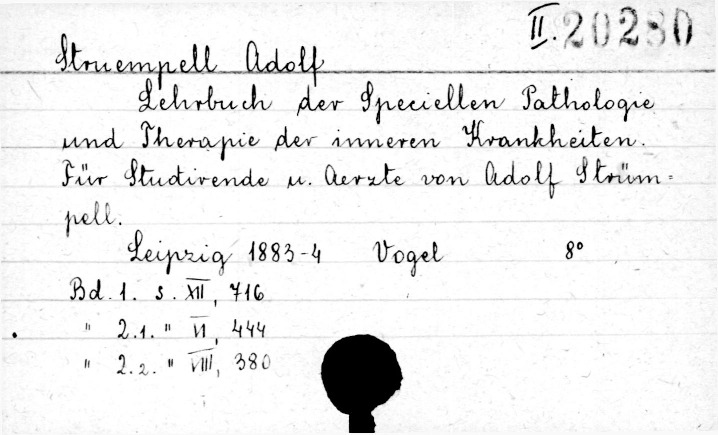 II. 20280
Struempell Adolf
Lehrbuch der Speciellen Pathologie
und Therapie der inneren Krankheiten.
Für Studirende u. Aerzte von Adolf Strüm=
pell.
Leipzig 1883-4 Vogel 8°
Bd. 1. S. XII, 716
" 2.1. " VI, 444
" 2.2. " VIII, 380